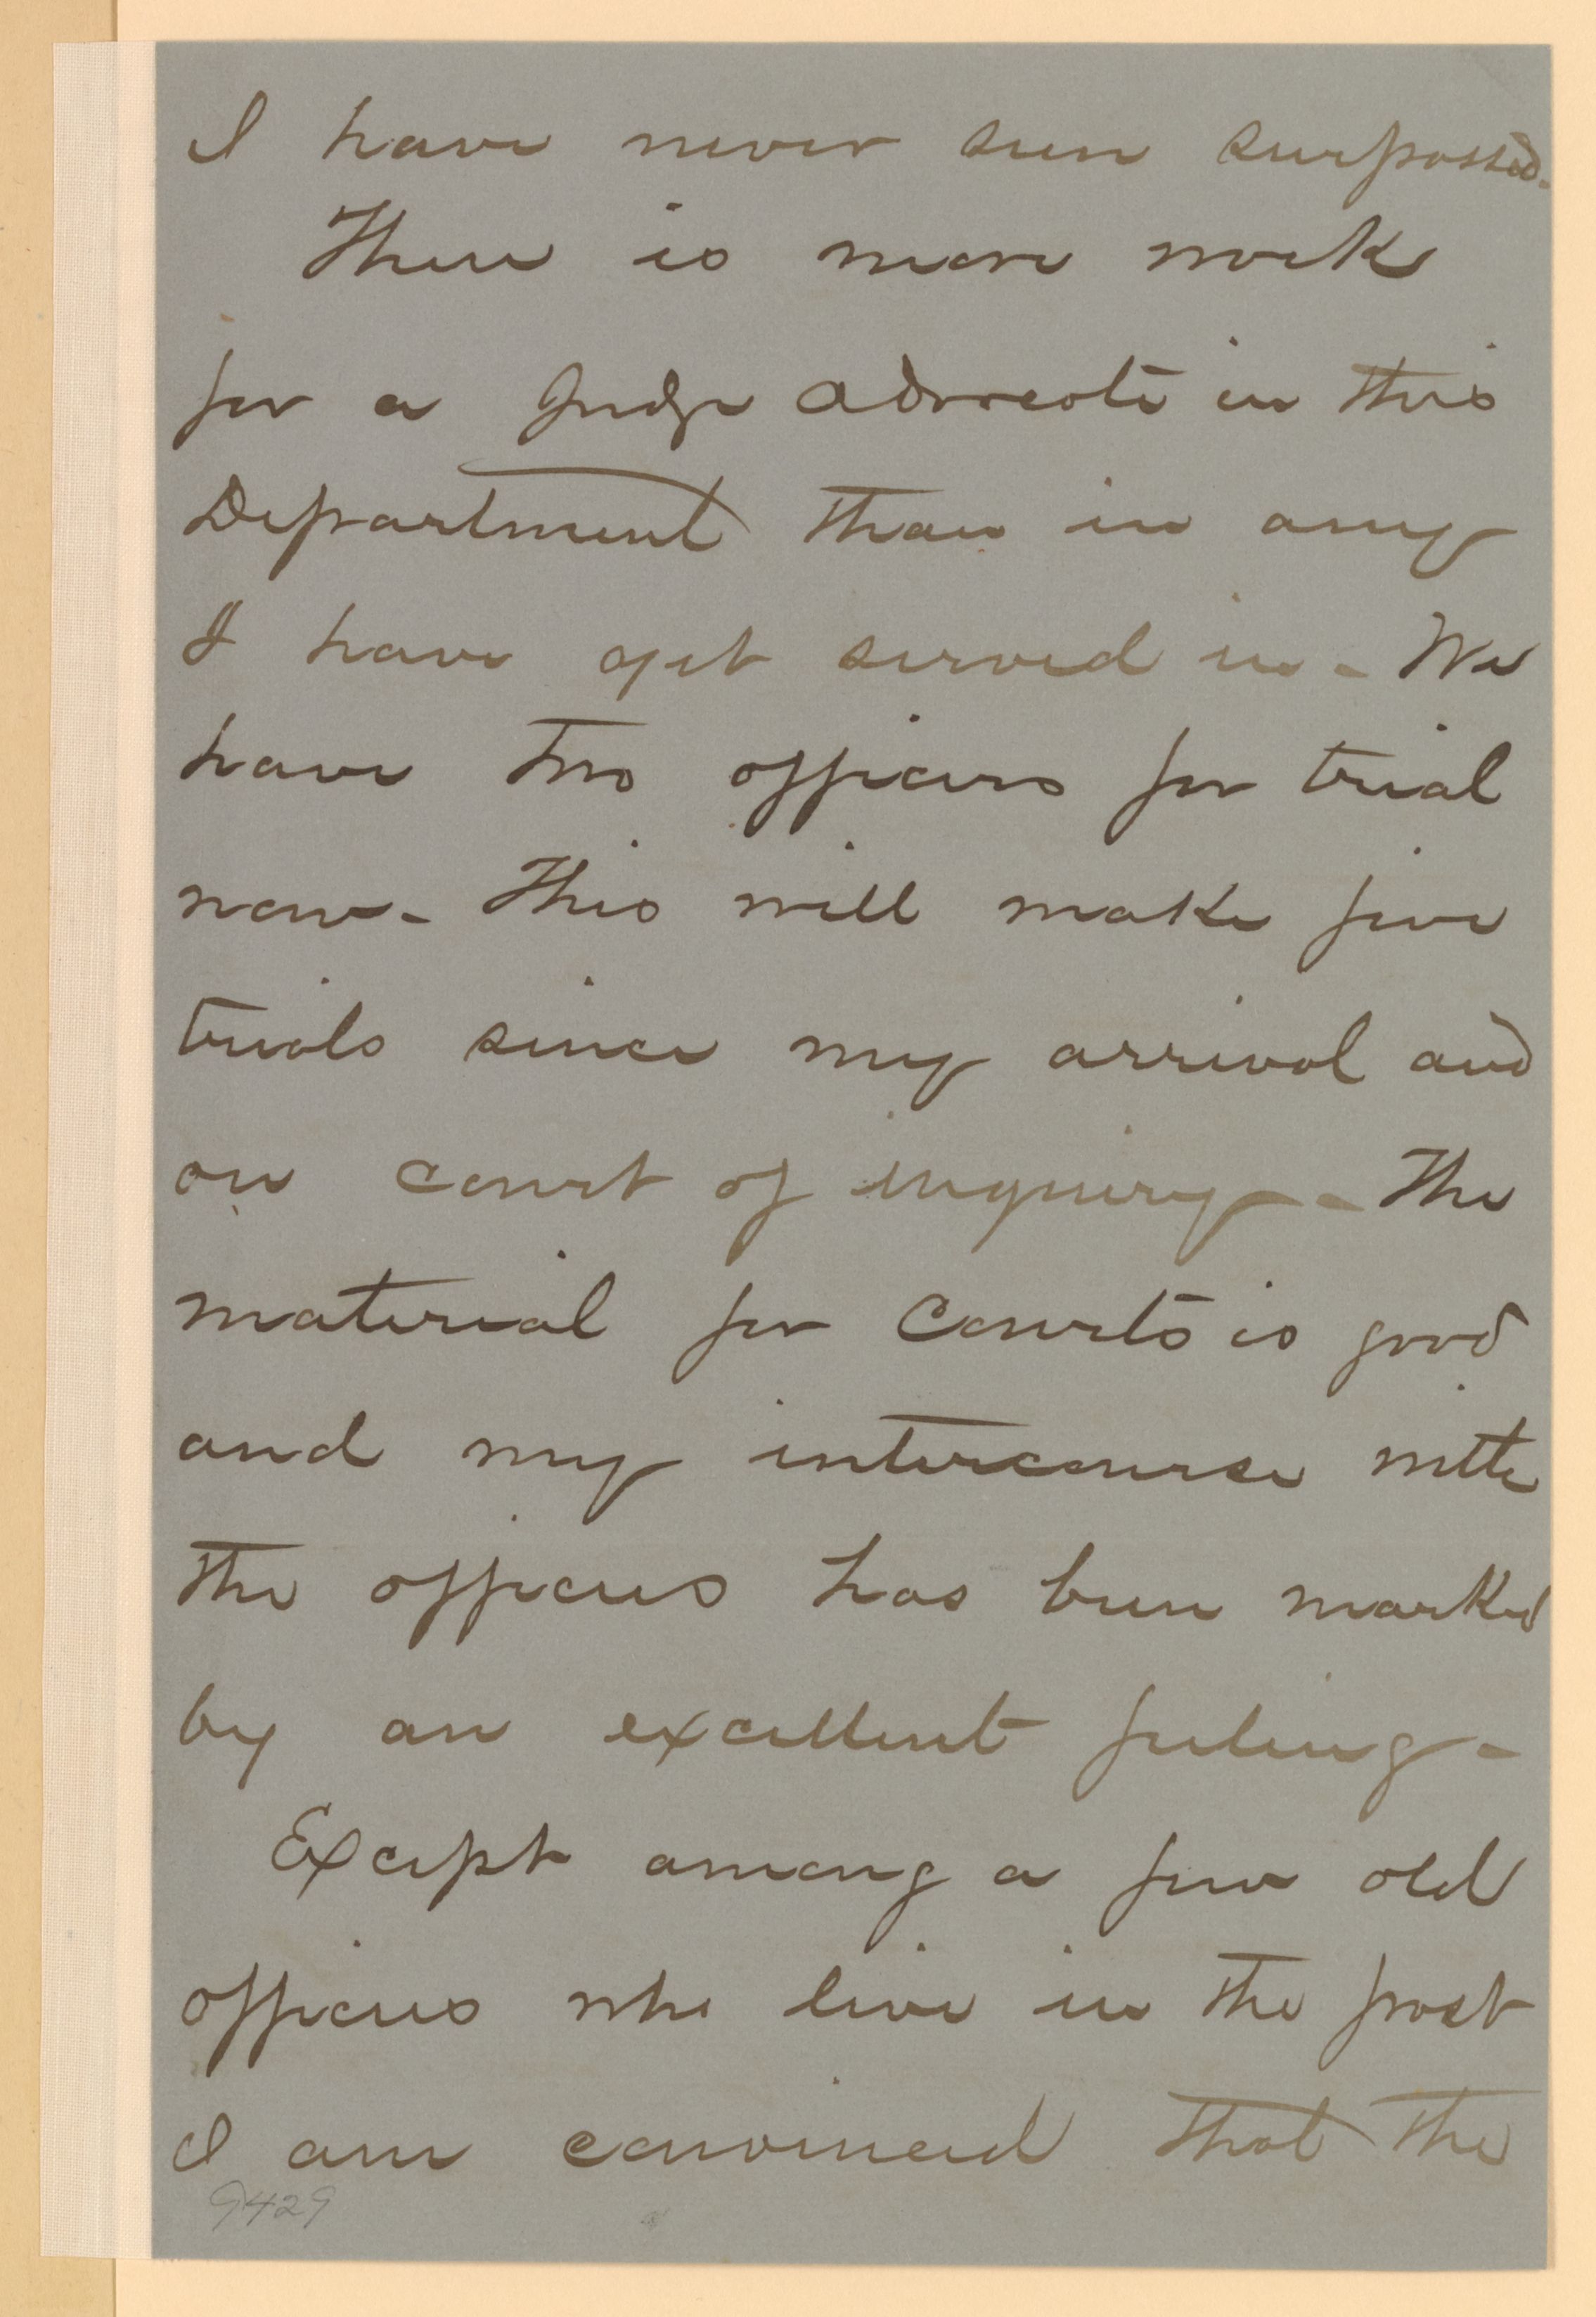 I have never seen surpassed.
There is more work
for a Judge Advocate in this
Department than in any
I have yet served in - We
have two officers for trial
now - This will make five
trials since my arrival and
on court of inquiry - The
material for Courts is good
and my intercourse with
the officers has been marked
by an excellent feeling -
Except among a few old
officers who live in the past
I am convinced that the
9429